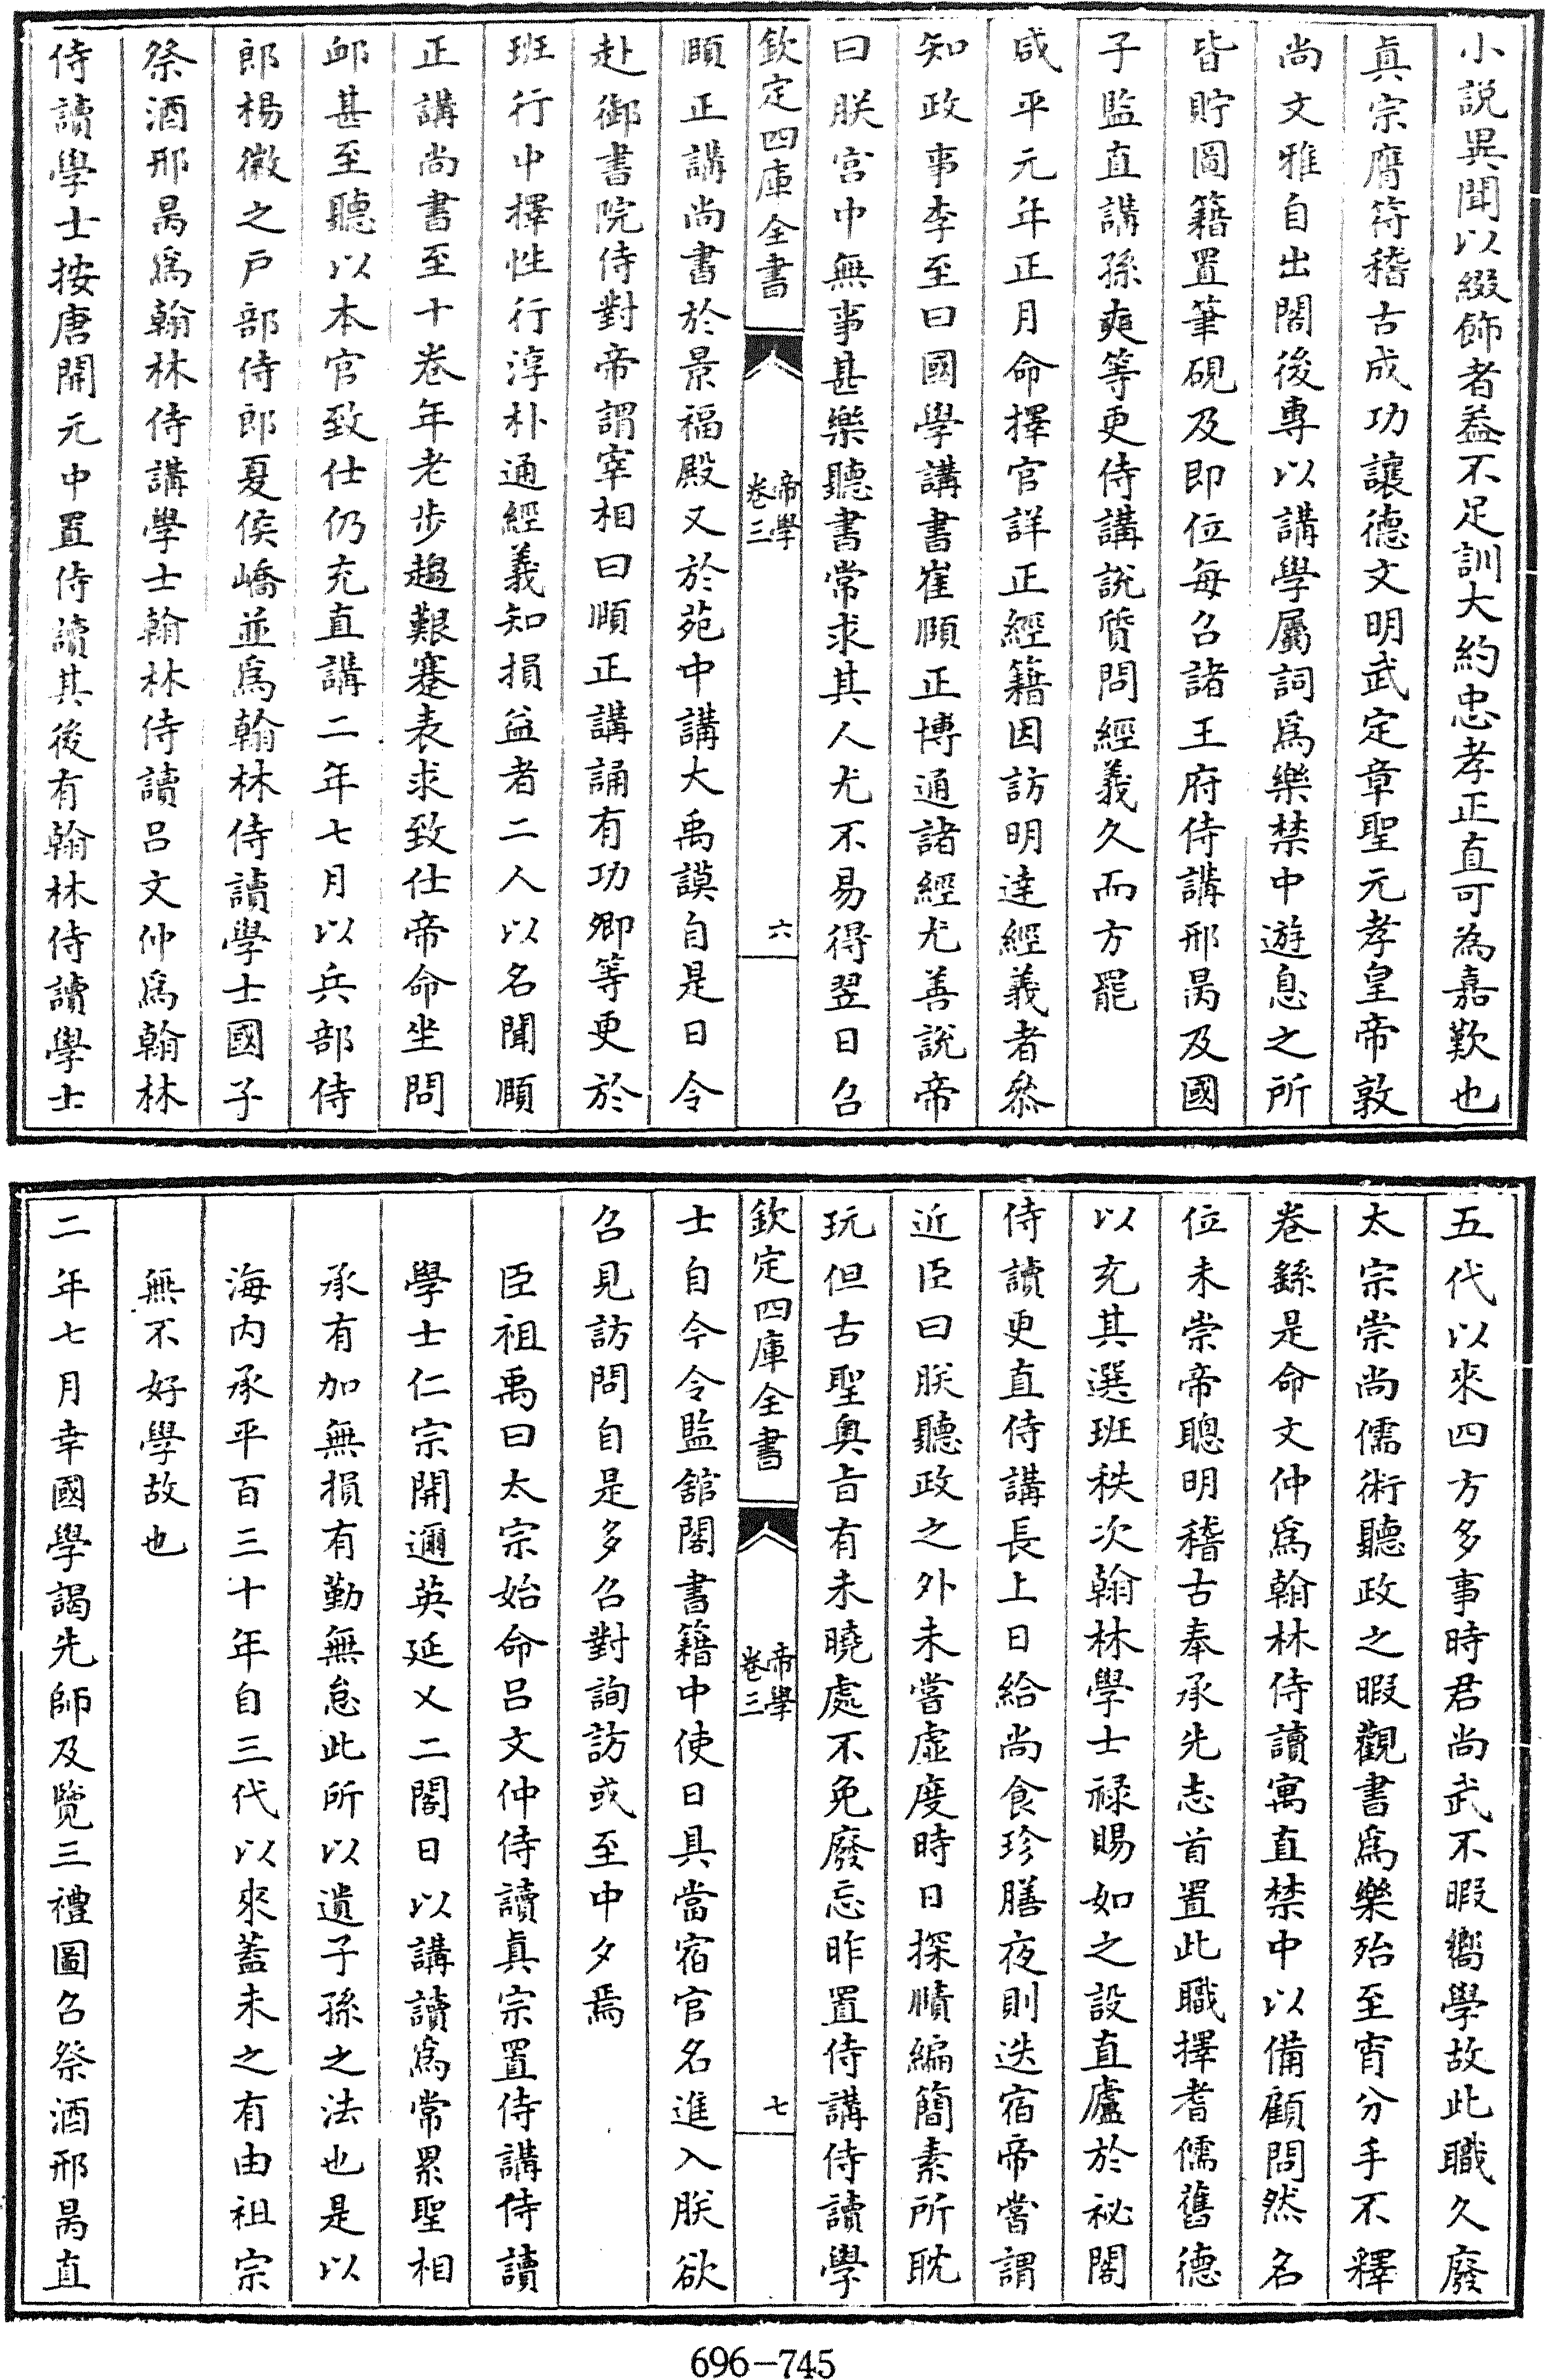 小說異聞以綴飾者益不足訓大約忠孝正直可為嘉歎也
真宗膺符稽古成功讓德文明武定章聖元孝皇帝敦
尚文雅自出閤後專以講學屬詞爲樂禁中遊息之所
皆貯圖籍置筆硯及即位每召諸王府侍講邢昺及國
子監直講孫奭等更侍講說質問經義久而方罷
咸平元年正月命擇官詳正經籍因訪明達經義者叅
知政事李至曰國學講書崔頤正博通諸經尤善說帝
曰朕宫中無事甚樂聽書常求其人尤不易得翌日召
欽定四庫全書 帝學 卷三 六
頤正講尚書於景福殿又於苑中講大禹謨自是日令
赴御書院侍對帝謂宰相曰頤正講誦有功卿等更於
班行中擇性行淳朴通經義知損益者二人以名聞頤
正講尚書至十卷年老步趨艱蹇表求致仕帝命坐問
卹甚至聽以本官致仕仍充直講二年七月以兵部侍
郎楊徽之戸部侍郎夏侯嶠並爲翰林侍讀學士國子
祭酒邢昺爲翰林侍講學士翰林侍讀吕文仲爲翰林
侍讀學士按唐開元中置侍讀其後有翰林侍讀學士
五代以來四方多事時君尚武不暇嚮學故此職久廢
太宗崇尚儒術聽政之暇觀書爲樂殆至宵分手不釋
卷繇是命文仲爲翰林侍讀寓直禁中以備顧問然名
位未崇帝聰明稽古奉承先志首置此職擇耆儒舊德
以充其選班秩次翰林學士禄賜如之設直廬於祕閣
侍讀更直侍講長上日給尚食珍膳夜則迭宿帝嘗謂
近臣曰朕聽政之外未嘗虚度時日探賾編簡素所耽
玩但古聖奥旨有未曉處不免廢忘昨置侍講侍讀學
欽定四庫全書 帝學 卷三 七
士自今令監舘閣書籍中使日具當宿官名進入朕欲
召見訪問自是多召對詢訪或至中夕焉
臣祖禹曰太宗始命吕文仲侍讀真宗置侍講侍讀
學士仁宗開邇英延乂二閣日以講讀爲常累聖相
承有加無損有勤無怠此所以遺子孫之法也是以
海内承平百三十年自三代以來蓋未之有由祖宗
無不好學故也
二年七月幸國學謁先師及覽三禮圖召祭酒邢昺直
696-745